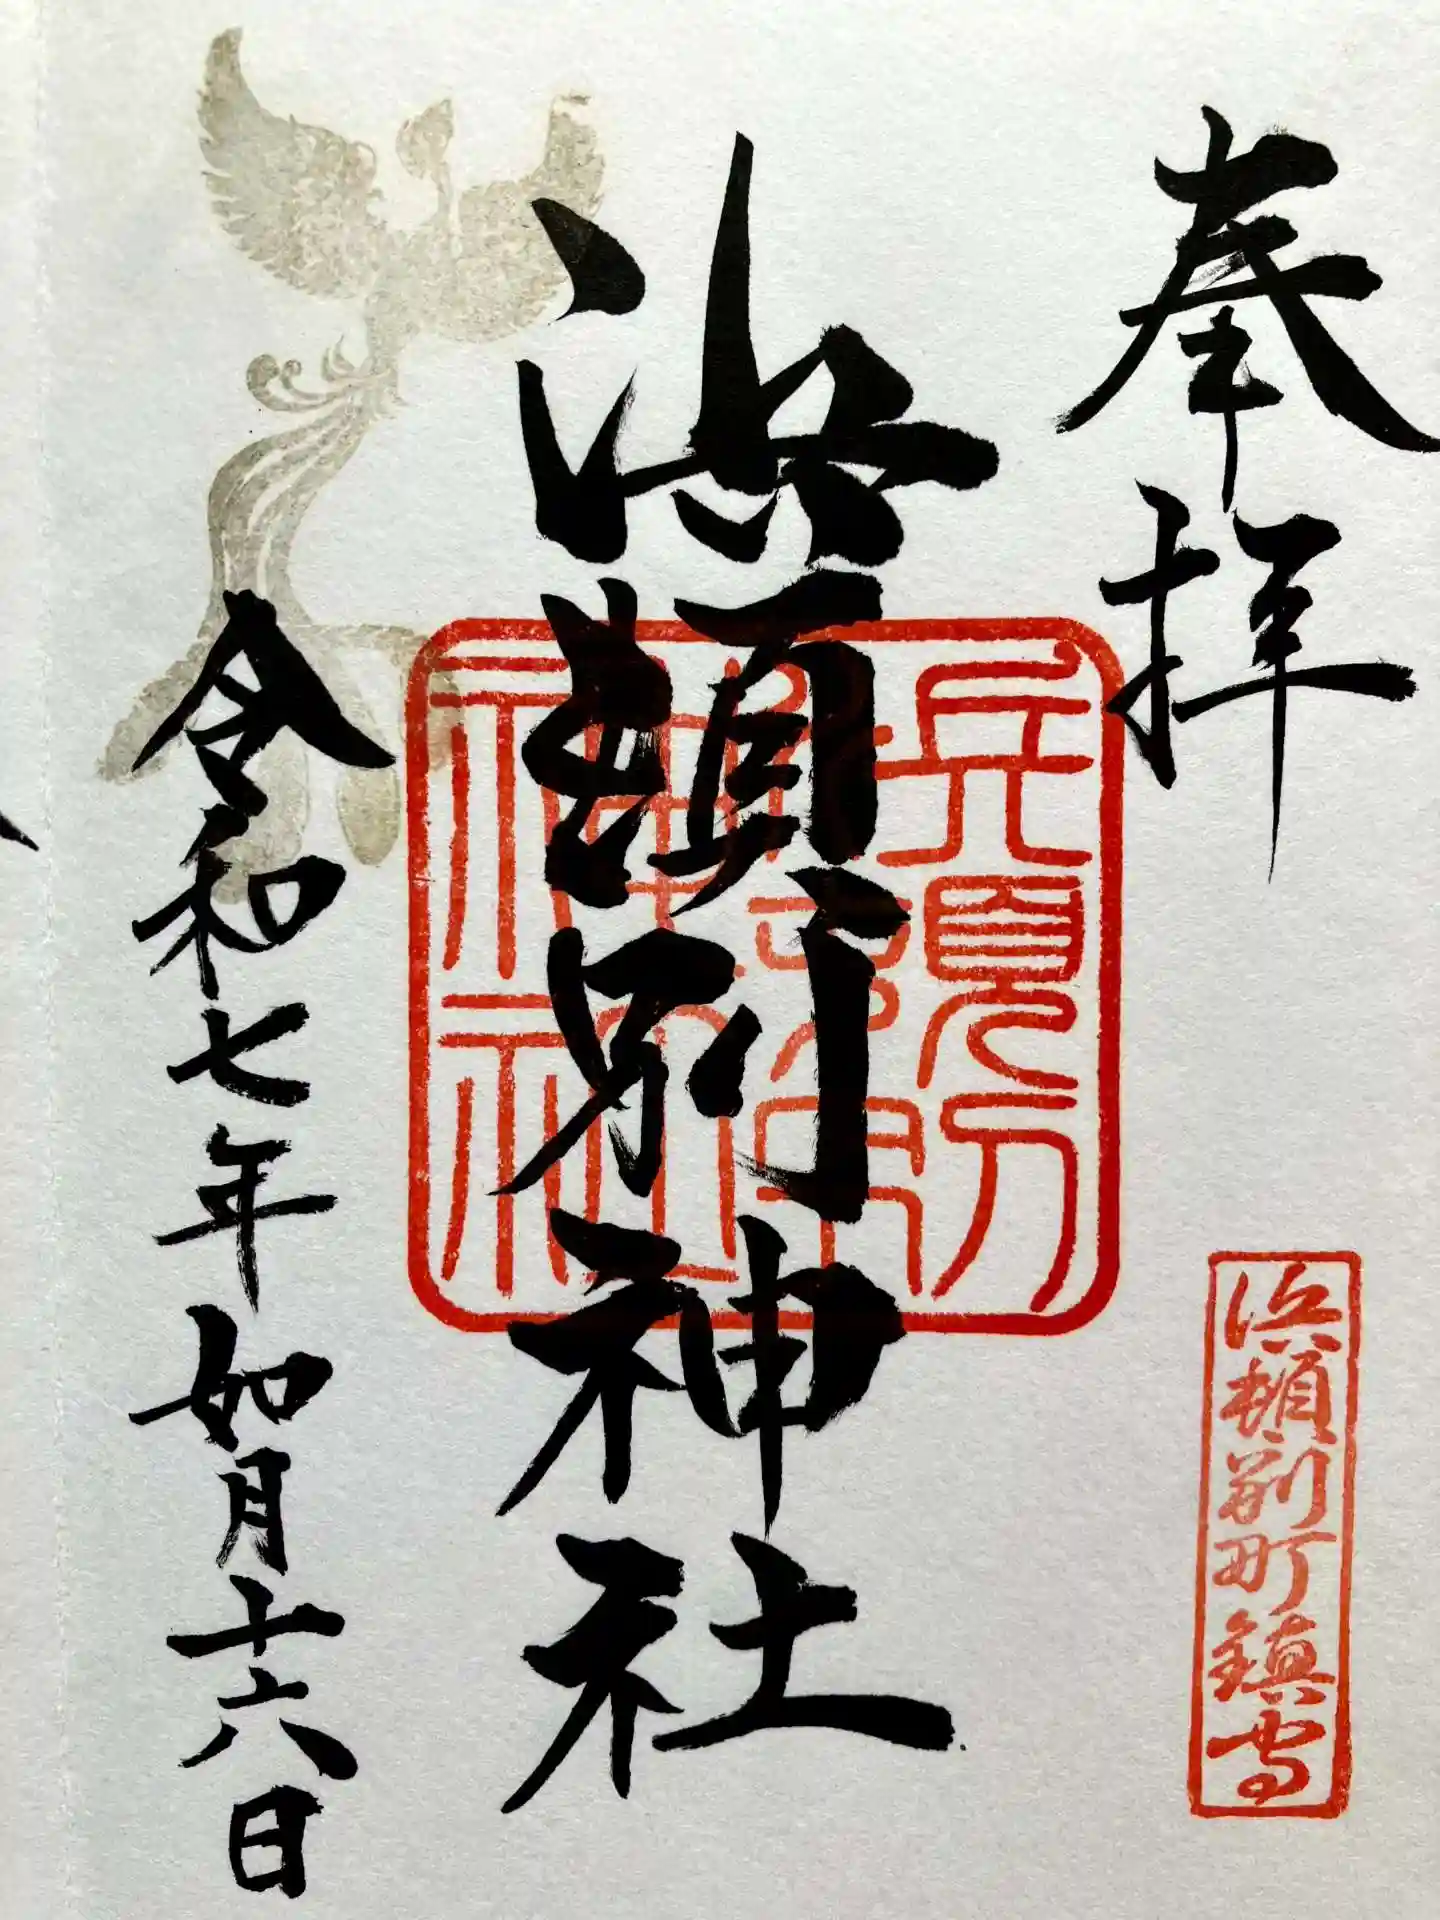 奉拝
浜頓別神社
令和七年如月十六日
浜頓別町鎮守